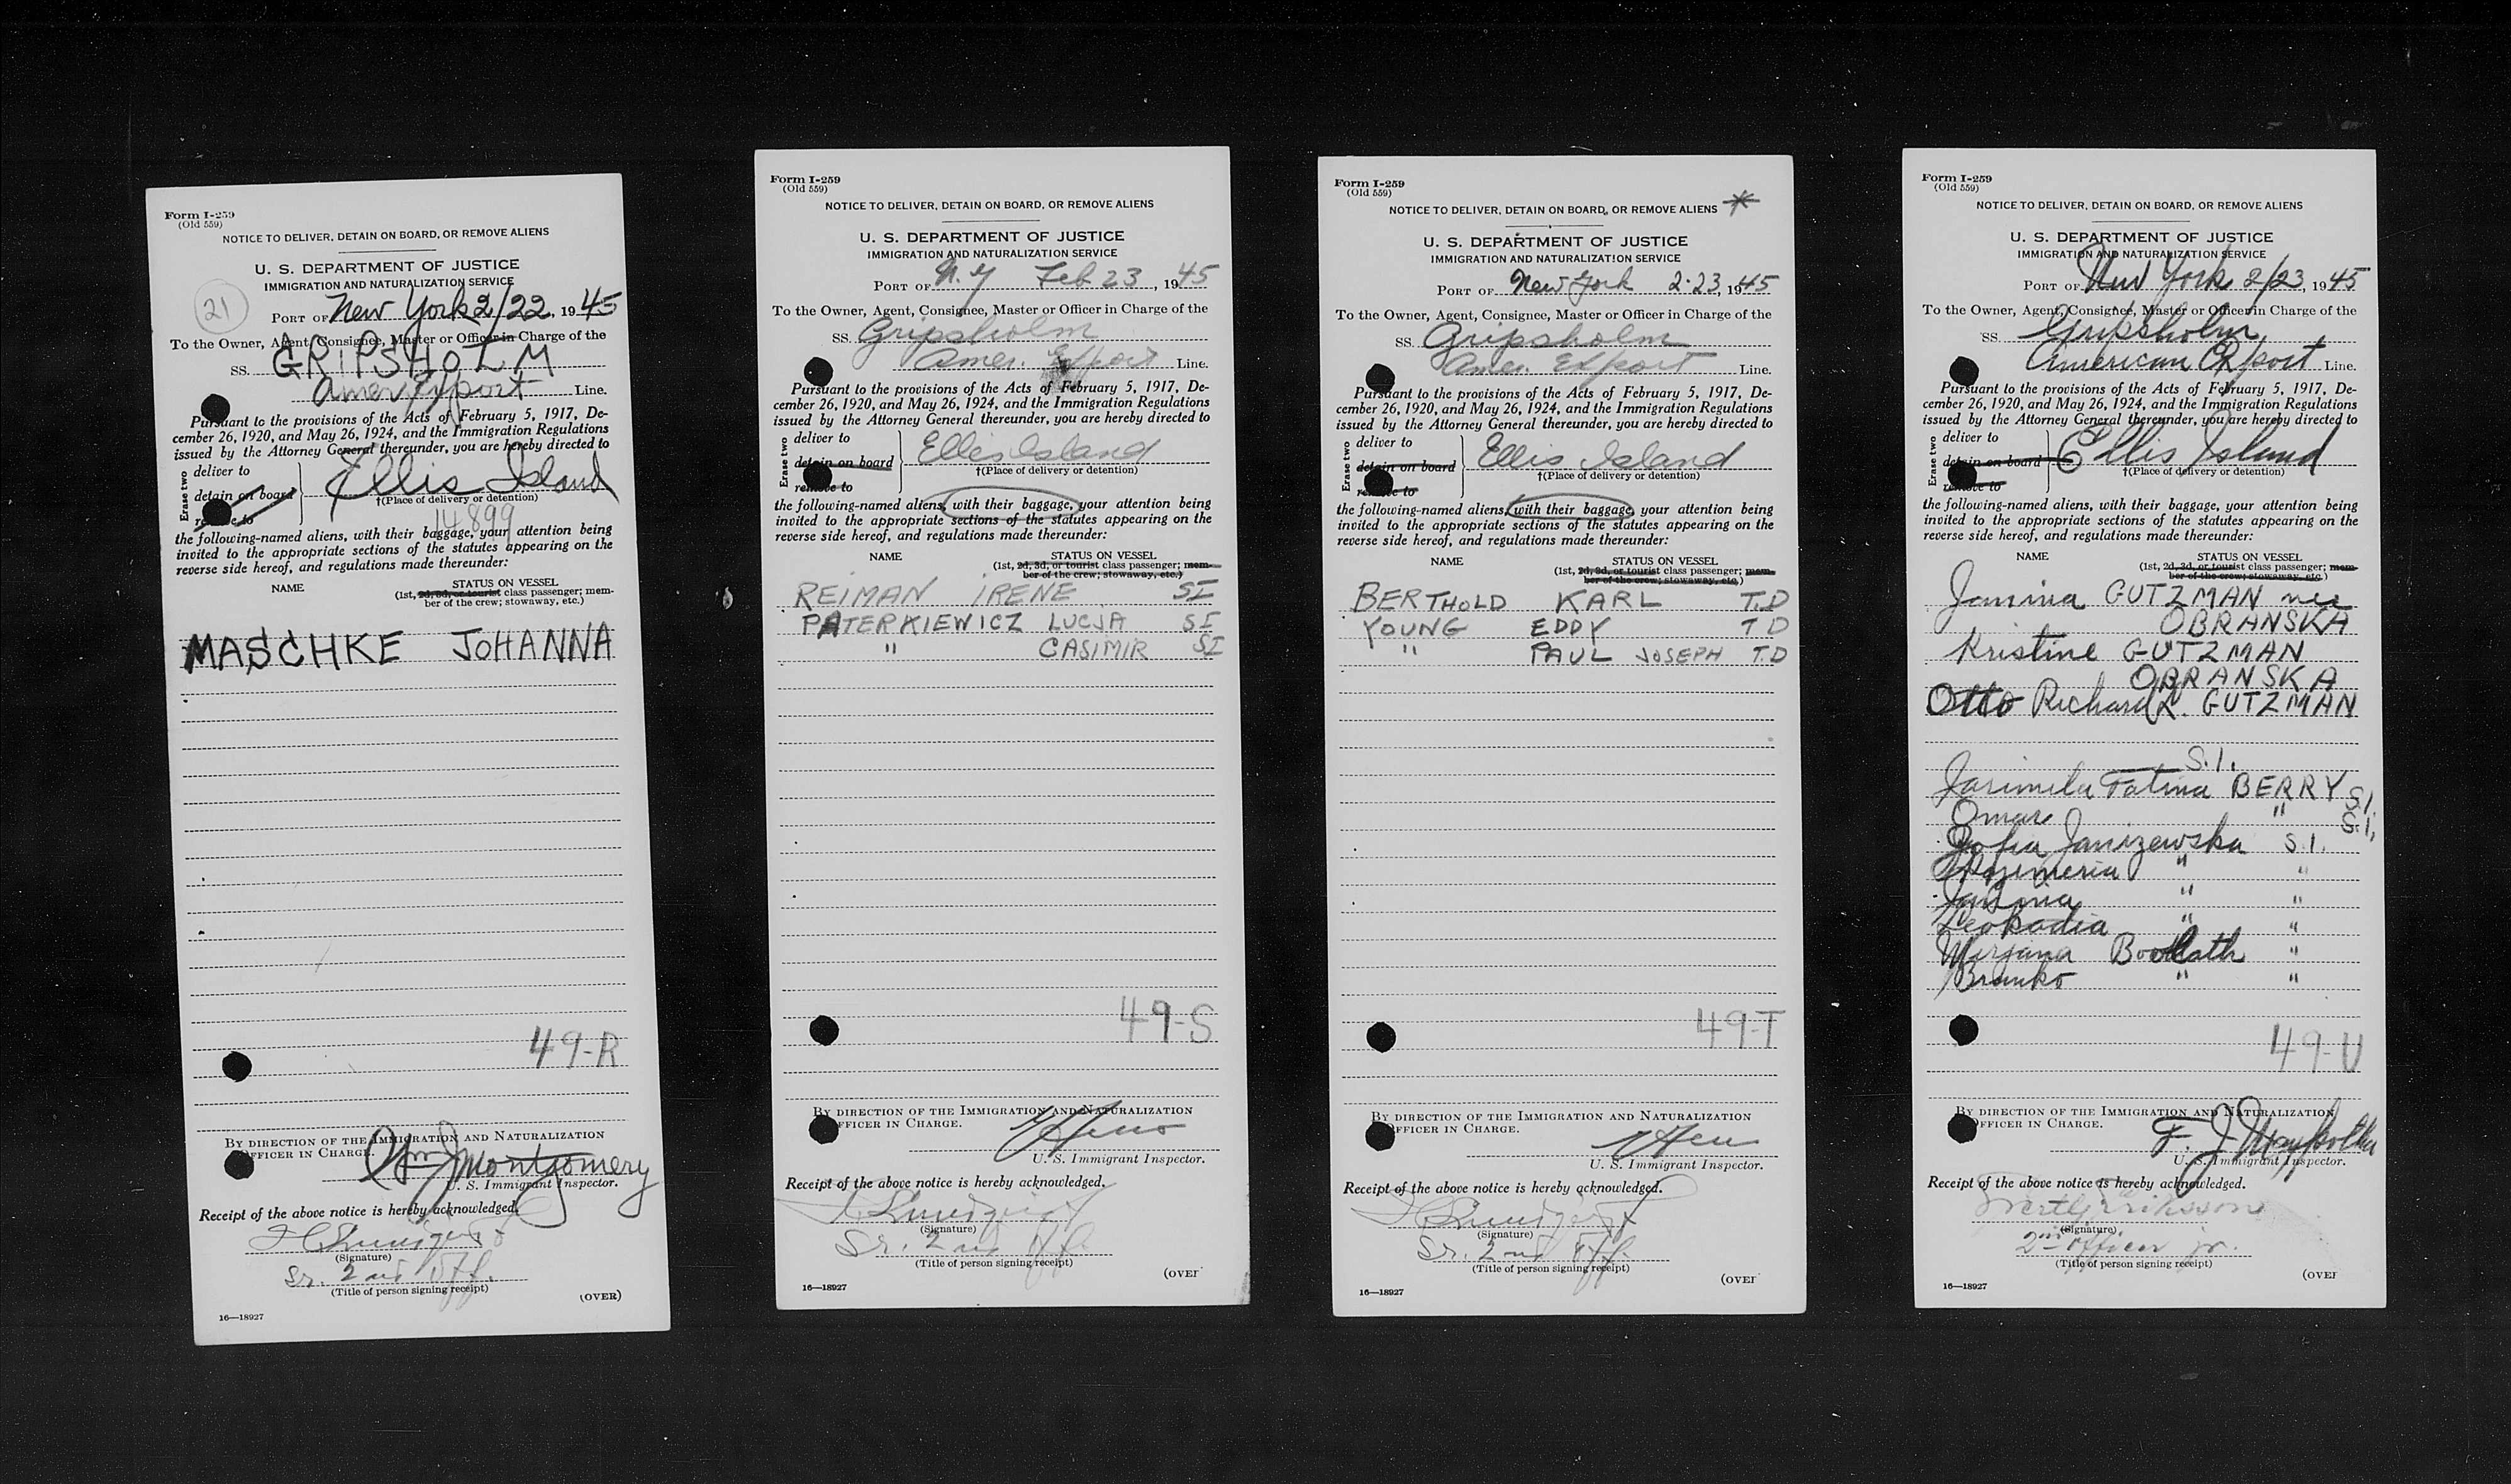 Form I-259
(Old 559)
NOTICE TO DELIVER, DETAIN ON BOARD, OR REMOVE ALIENS
U. S. DEPARTMENT OF JUSTICE
IMMIGRATION AND NATURALIZATION SERVICE
21
PORT OF New York 2/22, 1945
To the Owner, Agent, Consignee, Master or Officer in Charge of the
SS. GRIPSHOLM
Amer. Export Line.
Pursuant to the provisions of the Acts of February 5, 1917, De-
cember 26, 1920, and May 26, 1924, and the Immigration Regulations
issued by the Attorney General thereunder, you are hereby directed to
Erase two
deliver to
detain on board
remove to
Ellis Island
†(Place of delivery or detention)
14899
the following-named aliens, with their baggage, your attention being
invited to the appropriate sections of the statutes appearing on the
reverse side hereof, and regulations made thereunder:
NAME
STATUS ON VESSEL
(1st, 2d, 3d, or tourist class passenger; mem-
ber of the crew; stowaway, etc.)
MASCHKE JOHANNA
49-R
BY DIRECTION OF THE IMMIGRATION AND NATURALIZATION
OFFICER IN CHARGE.
Wm J Montgomery
U. S. Immigrant Inspector.
Receipt of the above notice is hereby acknowledged.
(Signature)
Sr. 2nd Off.
(Title of person signing receipt)
(OVER)
16—18927
Form I-259
(Old 559)
NOTICE TO DELIVER, DETAIN ON BOARD, OR REMOVE ALIENS
U. S. DEPARTMENT OF JUSTICE
IMMIGRATION AND NATURALIZATION SERVICE
PORT OF N. Y Feb 23, 1945
To the Owner, Agent, Consignee, Master or Officer in Charge of the
SS. Gripsholm
Amer. Export Line.
Pursuant to the provisions of the Acts of February 5, 1917, De-
cember 26, 1920, and May 26, 1924, and the Immigration Regulations
issued by the Attorney General thereunder, you are hereby directed to
Erase two
deliver to
detain on board
remove to
Ellis Island
†(Place of delivery or detention)
the following-named aliens, with their baggage, your attention being
invited to the appropriate sections of the statutes appearing on the
reverse side hereof, and regulations made thereunder:
NAME
STATUS ON VESSEL
(1st, 2d, 3d, or tourist class passenger; mem-
ber of the crew; stowaway, etc.)
REIMAN IRENE SI
PATERKIEWICZ LUCJA SI
" CASIMIR SI
49-S
BY DIRECTION OF THE IMMIGRATION AND NATURALIZATION
OFFICER IN CHARGE.
U. S. Immigrant Inspector.
Receipt of the above notice is hereby acknowledged.
(Signature)
Sr. 2nd Off.
(Title of person signing receipt)
(OVER
16—18927
Form I-259
(Old 559)
NOTICE TO DELIVER, DETAIN ON BOARD, OR REMOVE ALIENS *
U. S. DEPARTMENT OF JUSTICE
IMMIGRATION AND NATURALIZATION SERVICE
PORT OF New York 2-23, 1945
To the Owner, Agent, Consignee, Master or Officer in Charge of the
SS. Gripsholm
Amer. Export Line.
Pursuant to the provisions of the Acts of February 5, 1917, De-
cember 26, 1920, and May 26, 1924, and the Immigration Regulations
issued by the Attorney General thereunder, you are hereby directed to
Erase two
deliver to
detain on board
remove to
Ellis Island
†(Place of delivery or detention)
the following-named aliens, with their baggage, your attention being
invited to the appropriate sections of the statutes appearing on the
reverse side hereof, and regulations made thereunder:
NAME
STATUS ON VESSEL
(1st, 2d, 3d, or tourist class passenger; mem-
ber of the crew; stowaway, etc.)
BERTHOLD KARL T.D
YOUNG EDDY T D
" PAUL JOSEPH T.D
49-T
BY DIRECTION OF THE IMMIGRATION AND NATURALIZATION
OFFICER IN CHARGE.
U. S. Immigrant Inspector.
Receipt of the above notice is hereby acknowledged.
(Signature)
Sr. 2nd Off.
(Title of person signing receipt)
(OVER
16—18927
Form I-259
(Old 559)
NOTICE TO DELIVER, DETAIN ON BOARD, OR REMOVE ALIENS
U. S. DEPARTMENT OF JUSTICE
IMMIGRATION AND NATURALIZATION SERVICE
PORT OF New York 2/23, 1945
To the Owner, Agent, Consignee, Master or Officer in Charge of the
SS. Gripsholm
American Export Line.
Pursuant to the provisions of the Acts of February 5, 1917, De-
cember 26, 1920, and May 26, 1924, and the Immigration Regulations
issued by the Attorney General thereunder, you are hereby directed to
Erase two
deliver to
detain on board
remove to
Ellis Island
†(Place of delivery or detention)
the following-named aliens, with their baggage, your attention being
invited to the appropriate sections of the statutes appearing on the
reverse side hereof, and regulations made thereunder:
NAME
STATUS ON VESSEL
(1st, 2d, 3d, or tourist class passenger; mem-
ber of the crew; stowaway, etc.)
Janina GUTZMAN nee
OBRANSKA
Kristine GUTZMAN
OBRANSKA
Otto Richard R. GUTZMAN
S.I.
Jarimila Fatima BERRY S.I.
Omar " S.I.
Zofia Janizewska S.I.
Kazimeria " "
Janina " "
Leokadia " "
Mirjana "
Branko " "
49-U
BY DIRECTION OF THE IMMIGRATION AND NATURALIZATION
OFFICER IN CHARGE.
F. J.
U. S. Immigrant Inspector.
Receipt of the above notice is hereby acknowledged.
(Signature)
2nd Officer jr.
(Title of person signing receipt)
(OVER
16—18927